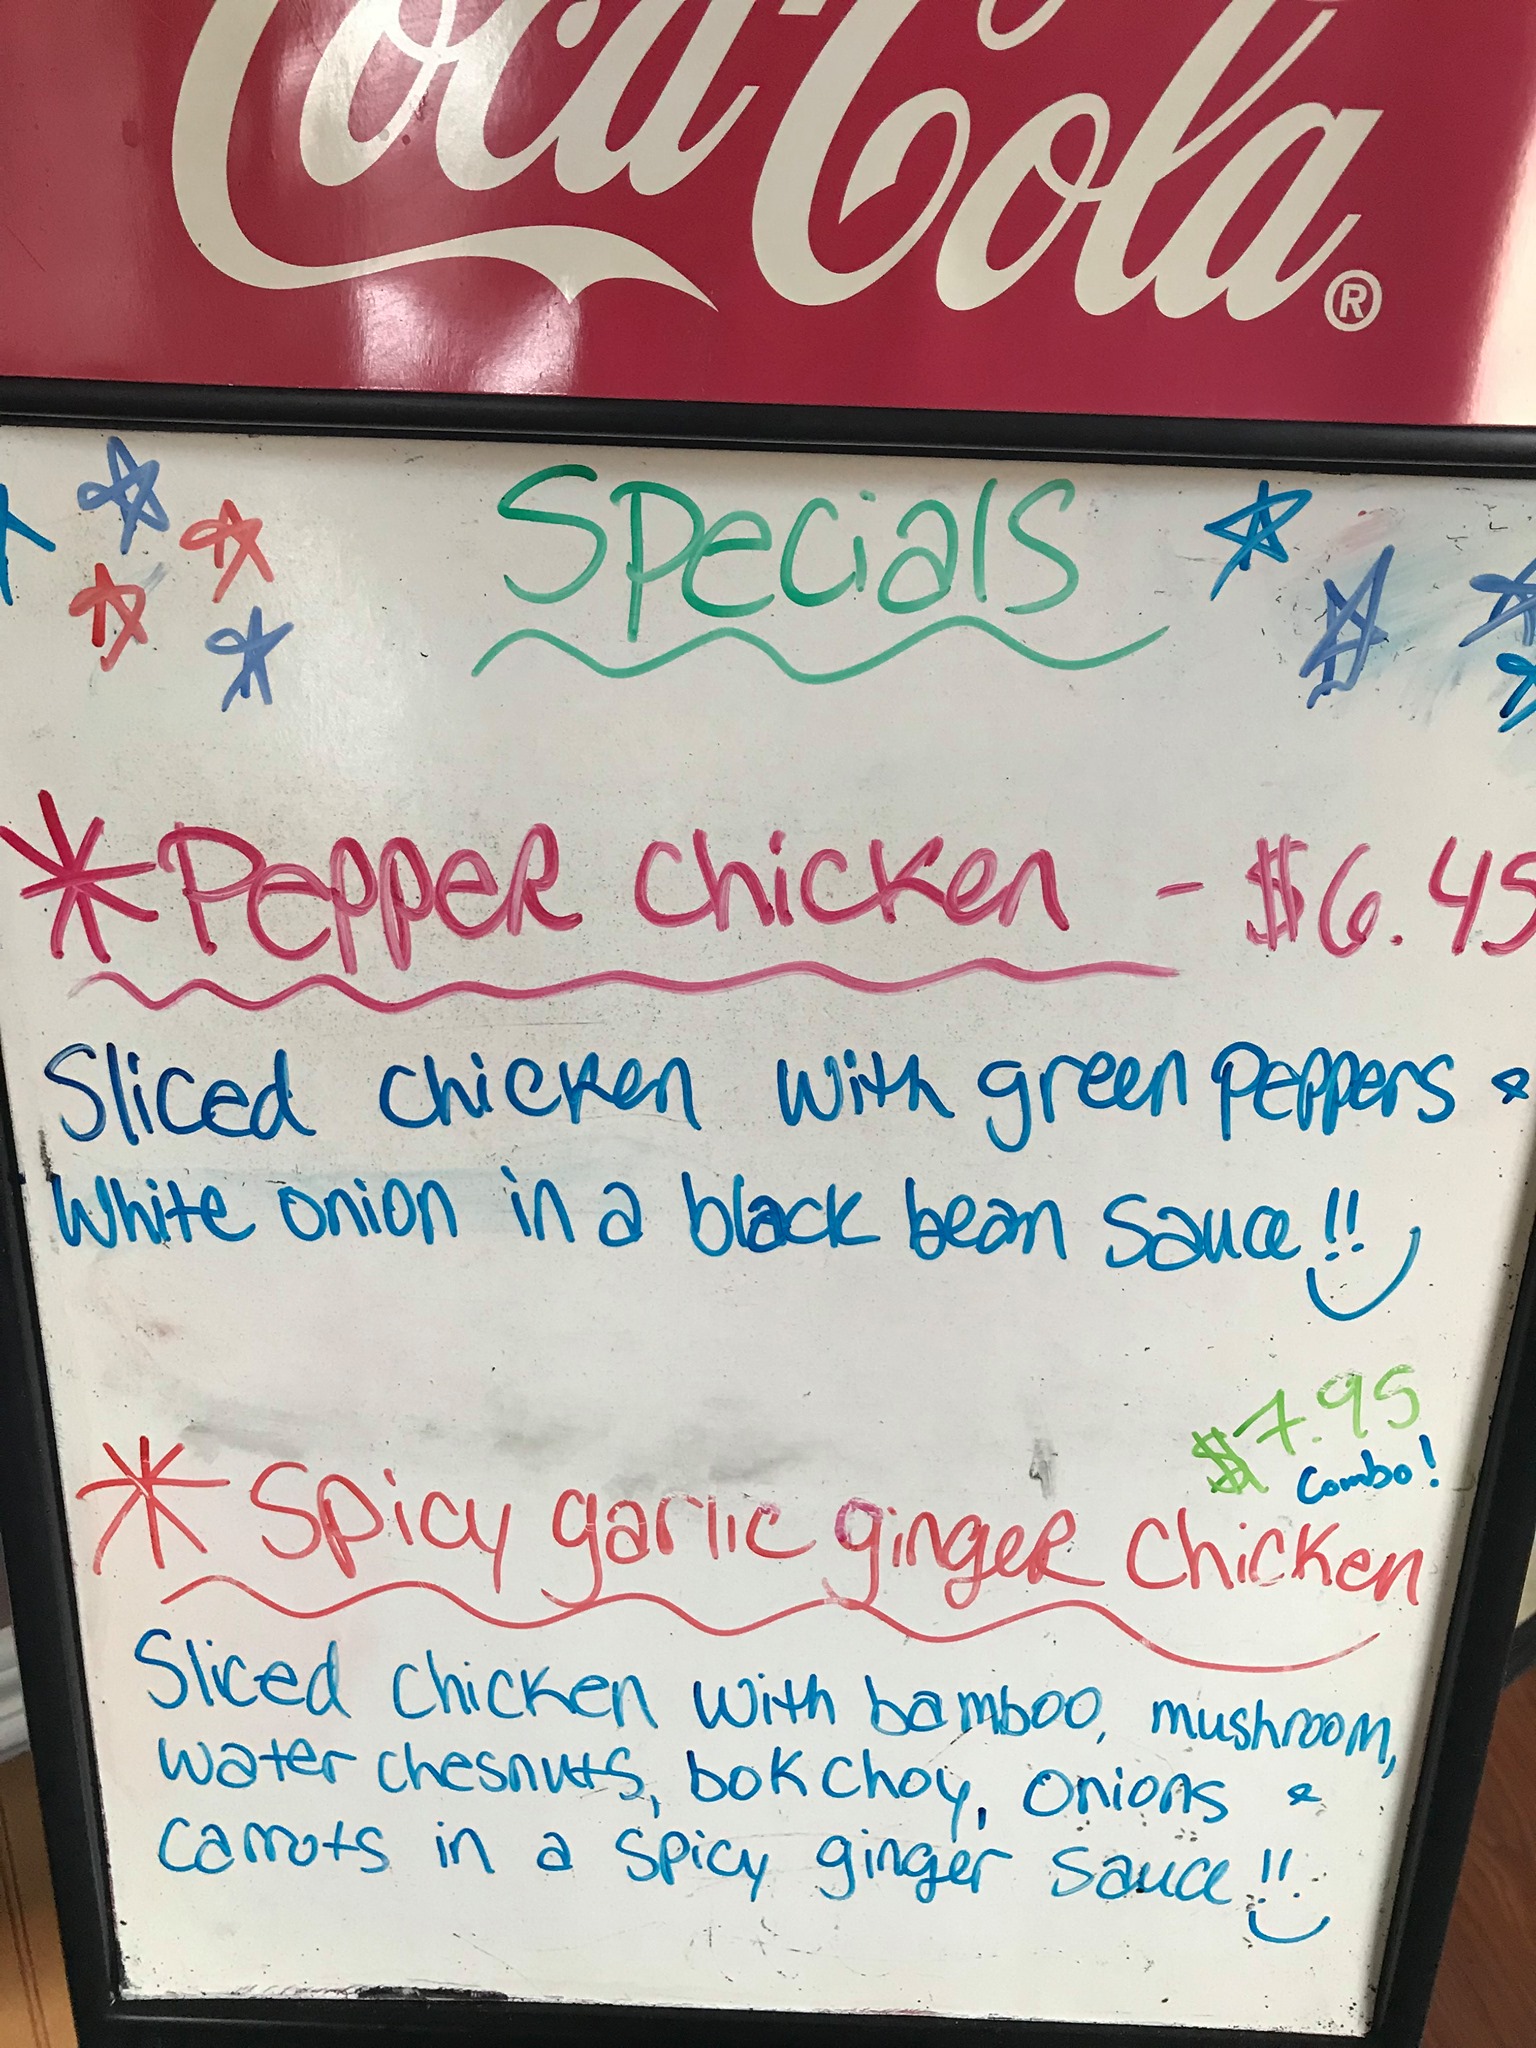 Coca-Cola®
Specials
*Pepper Chicken - $6.45
Sliced chicken with green peppers &
white onion in a black bean sauce!!
$7.95
Combo!
*Spicy garlic ginger Chicken
Sliced chicken with bamboo, mushroom,
water chesnuts, bok choy, onions &
carrots in a spicy ginger sauce!!